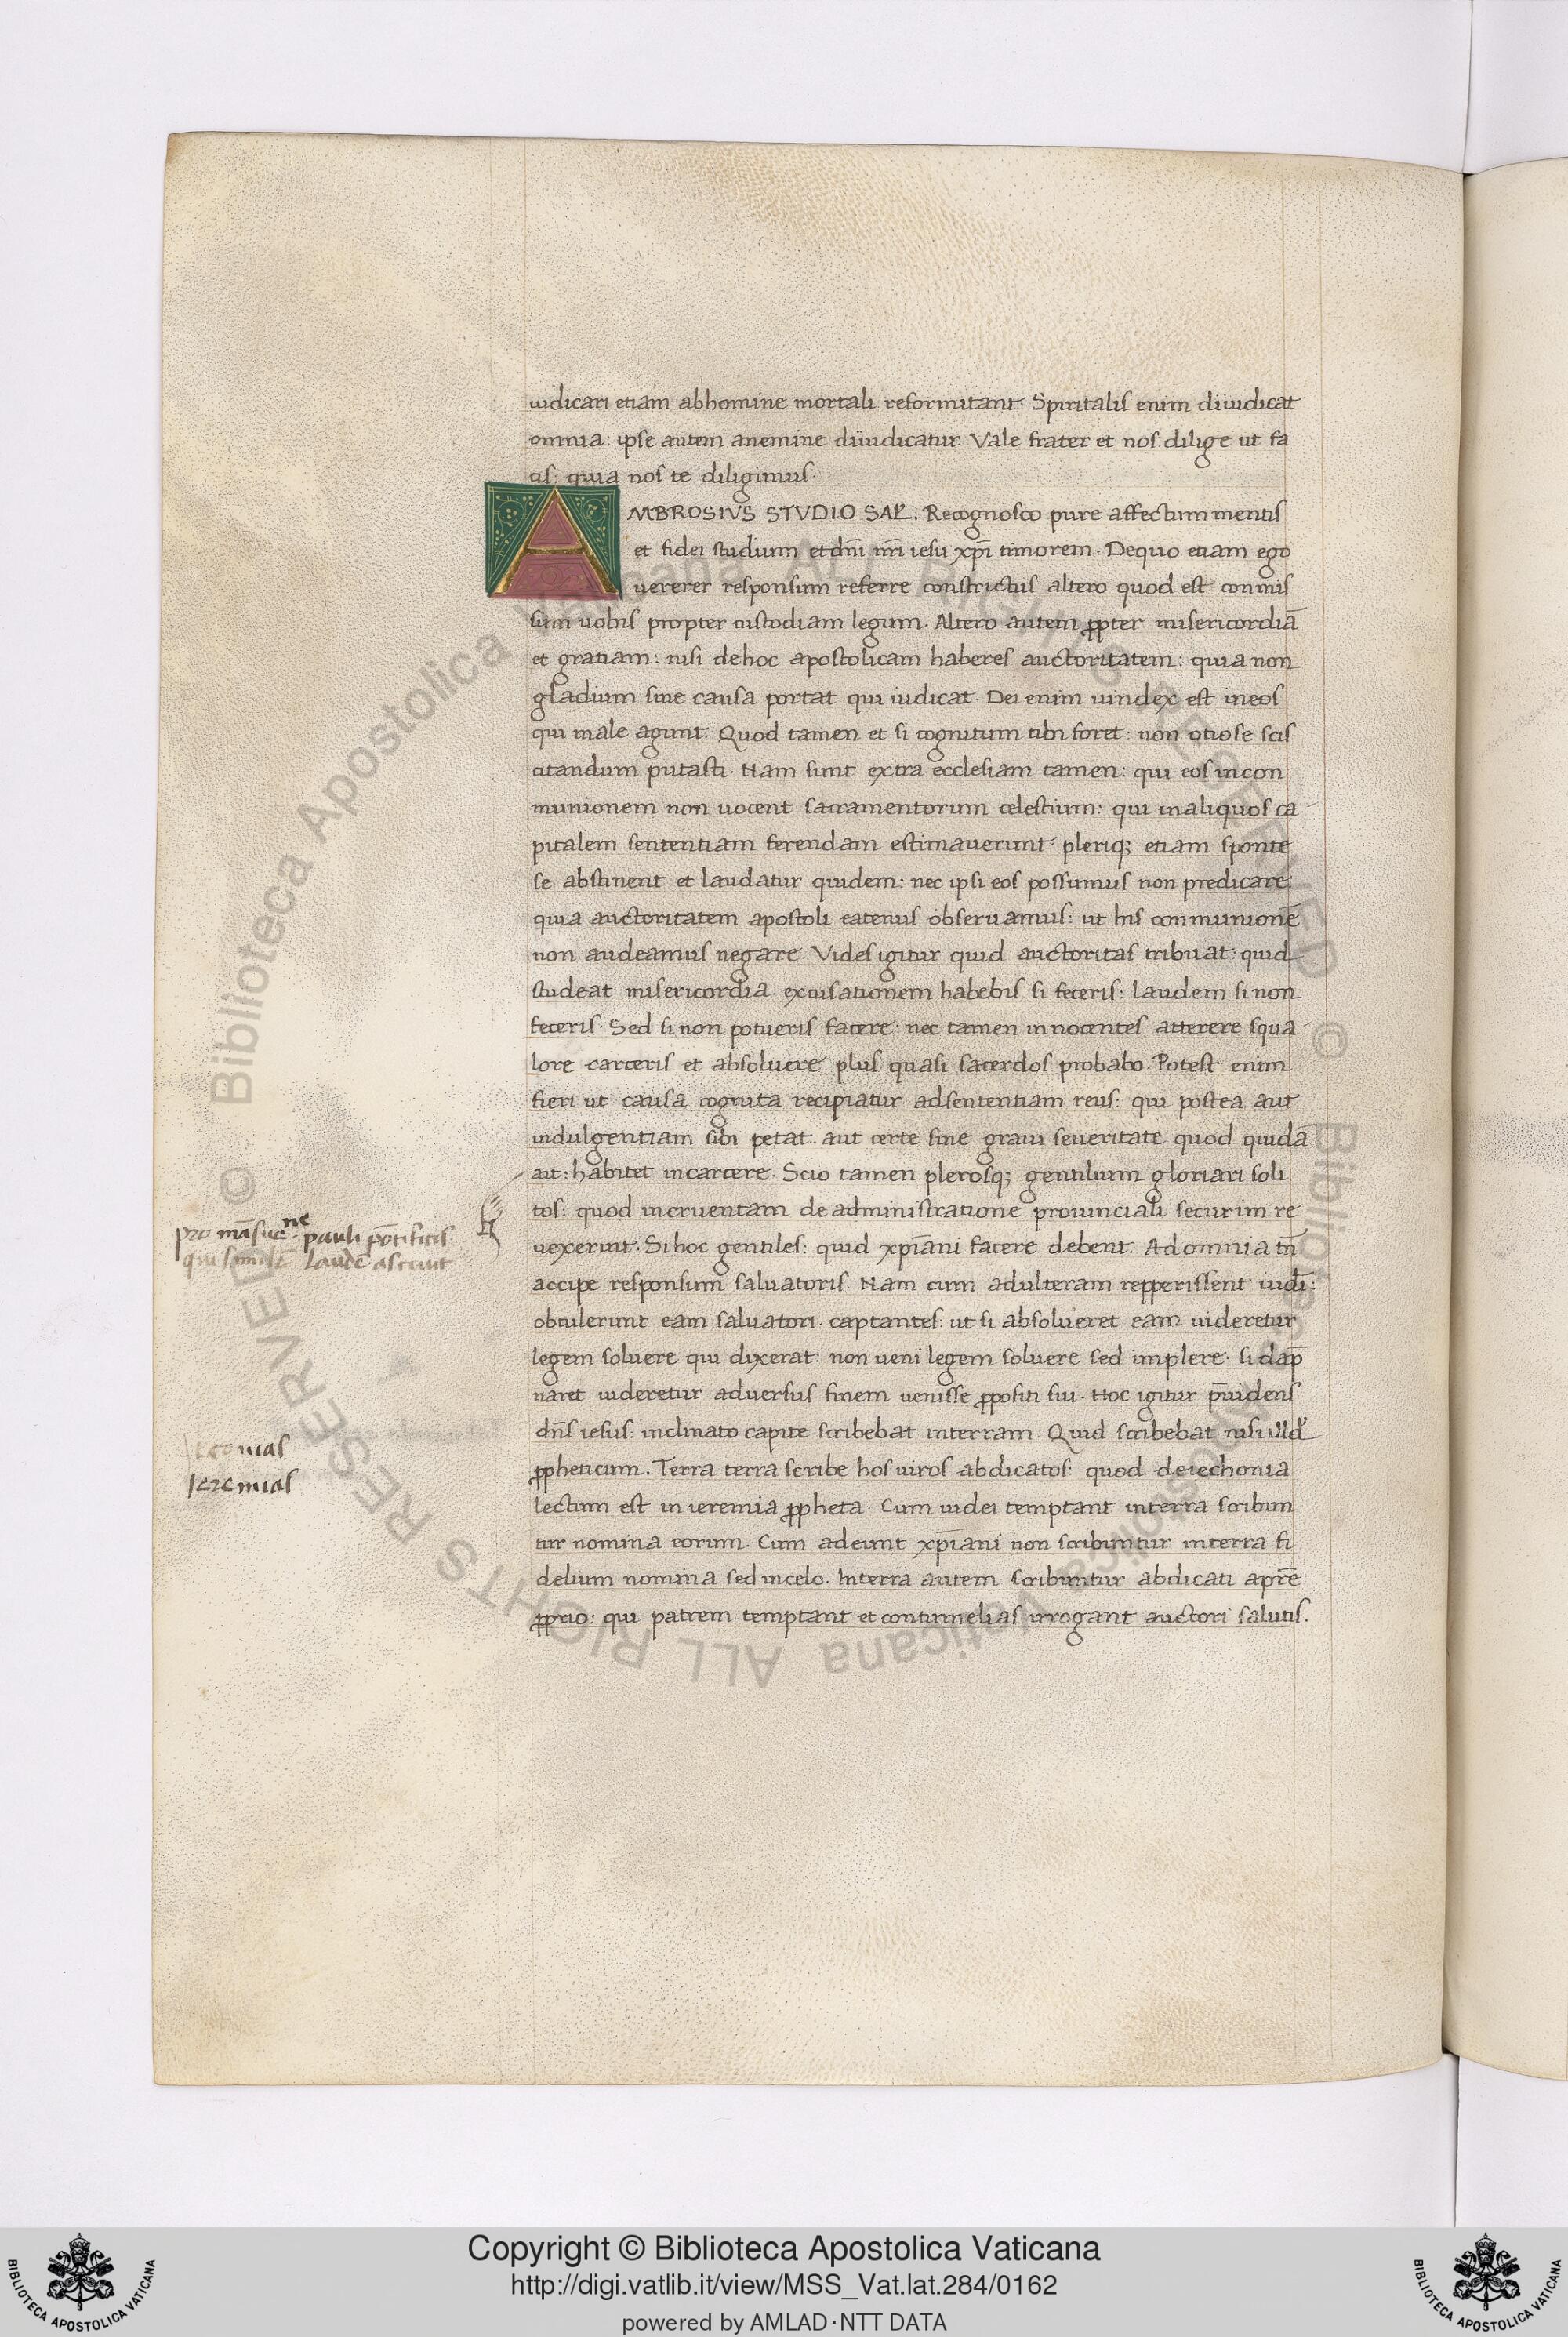 iudicari etiam abhomine mortali reformitant. Spiritalis enim diiudicat
omnia: ipse autem anemine diiudicatur. Vale frater et nos dilige ut fa
cis: quia nos te diligimus.
AMBROSIVS STVDIO SAL. Recognosco pure affectum mentis
et fidei studium et dn̄i nr̄i iesu xp̄i timorem. Dequo etiam ego
uererer responsum referre constrictus altero quod est conmis
sum uobis propter custodiam legum. Altero autem ꝓpter misericordiā
et gratiam: nisi dehoc apostolicam haberes auctoritatem: quia non
gladium sine causa portat qui iudicat. Dei enim uindex est ineos
qui male agunt. Quod tamen et si cognitum tibi foret: non otiose scis
citandum putasti. Nam sunt extra ecclesiam tamen: qui eos incon
munionem non uocent sacramentorum celestium: qui inaliquos ca
pitalem sententiam ferendam estimauerunt. pleriq; etiam sponte
se abstinent et laudatur quidem: nec ipsi eos possumus non predicare:
quia auctoritatem apostoli eatenus obseruamus: ut his conmunionē
non audeamus negare. Vides igitur quid auctoritas tribuat: quid
studeat misericordia. excusationem habebis si feceris: laudem si non
feceris. Sed si non potueris facere: nec tamen innocentes atterere squa
lore carceris et absoluere plus quasi sacerdos probabo. Potest enim
fieri ut causa cognita recipiatur adsententiam reus: qui postea aut
indulgentiam sibi petat. aut certe sine graui seueritate quod quidā
ait: habitet incarcere. Scio tamen plerosq; gentilium gloriari soli
tos: quod incruentam de administratione prouinciali securim re
uexerint. Si hoc gentiles: quid xp̄iani facere debent. Ad omnia tn̄
accipe responsum saluatoris. Nam cum adulteram repperissent iudi:
obtulerunt eam saluatori. captantes: ut si absolueret eam uideretur
legem soluere qui dixerat: non ueni legem soluere sed implere. si dap̄
naret uideretur aduersus finem uenisse ꝓpositi sui. Hoc igitur p̄uidens
dn̄s iesus: inclinato capite scribebat interram. Quid scribebat nisi illd
ꝓpheticum. Terra terra scribe hos uiros abdicatos: quod deiechonia
lectum est in ieremia ꝓpheta. Cum iudei temptant interra scribun
tur nomina eorum. Cum adeunt xp̄iani non scribuntur interra fi
delium nomina sed incelo. Interra autem scribuntur abdicati apr̄e
ꝓprio: qui patrem temptant et contumelias irrogant auctori salutis.
pro māsue ne pauli pōtificis
laudē
Ieconias
Ieremias
© Biblioteca Apostolica Vaticana ALL RIGHTS RESERVED © Biblioteca Apostolica Vaticana ALL RIGHTS RESERVED
Copyright © Biblioteca Apostolica Vaticana
http://digi.vatlib.it/view/MSS_Vat.lat.284/0162
powered by AMLAD·NTT DATA
BIBLIOTECA APOSTOLICA VATICANA
BIBLIOTECA APOSTOLICA VATICANA